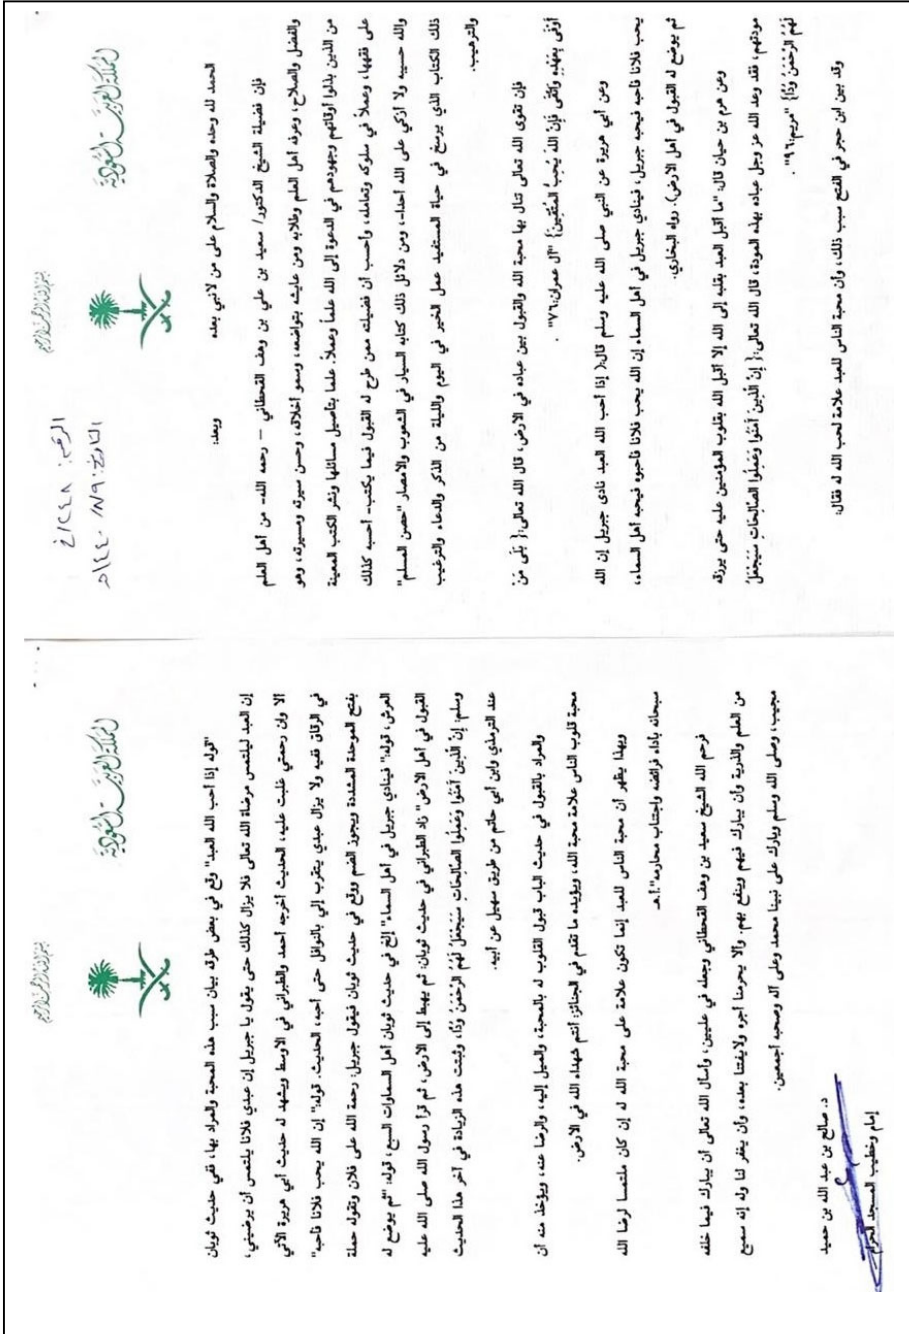 بسم الله الرحمن الرحيم
المملكة العربية السعودية
الرقم: ١٢٤٨/خ
التاريخ: ١٤٤٠/٧/٩هـ
الحمد لله وحده والصلاة والسلام على من لانبي بعده
وبعد.
فإن فضيلة الشيخ الدكتور/ سعيد بن علي بن وهف القحطاني – رحمه الله- من أهل العلم
والفضل والصلاح، وعرفه أهل العلم وطلابه ومن عايشه بتواضعه، وسمو أخلاقه، وحسن سيرته ومسيرته، وهو
من الذين بذلوا أوقاتهم وجهودهم في الدعوة إلى الله علماً وعملاً. علما بتأصيل مسائلها ونشر الكتب المعينة
على فقهها، وعملاً في سلوكه وتعامله، وأحسب أن فضيلته ممن طرح له القبول فيما يكتب- أحسبه كذلك
والله حسيبه ولا أزكي على الله أحدا-، ومن دلائل ذلك كتابه السيار في الشعوب والأمصار "حصن المسلم"
ذلك الكتاب الذي يرسخ في حياة المستفيد عمل الخير في اليوم والليلة من الذكر والدعاء والترغيب
والترهيب.
فإن تقوى الله تعالى تنال بها محبة الله والقبول بين عباده في الأرض، قال الله تعالى:{ بَلَى مَنْ
أَوْفَى بِعَهْدِهِ وَاتَّقَى فَإِنَّ اللَّهَ يُحِبُّ الْمُتَّقِينَ} "آل عمران:٧٦".
وعن أبي هريرة عن النبي صلى الله عليه وسلم قال:( إذا أحب الله العبد نادى جبريل إن الله
يحب فلانا فأحبه فيحبه جبريل، فينادي جبريل في أهل السماء إن الله يحب فلانا فأحبوه فيحبه أهل السماء،
ثم يوضع له القبول في أهل الأرض). رواه البخاري.
وعن هرم بن حيان قال: "ما أقبل العبد بقلبه إلى الله إلا أقبل الله بقلوب المؤمنين عليه حتى يرزقه
مودتهم، فقد وعد الله عز وجل عباده بهذه المودة، قال الله تعالى:{ إِنَّ الَّذِينَ آمَنُوا وَعَمِلُوا الصَّالِحَاتِ سَيَجْعَلُ
لَهُمُ الرَّحْمَنُ وُدًّا} "مريم:٩٦".
وقد بين ابن حجر في الفتح سبب ذلك، وأن محبة الناس للعبد علامة لحب الله له فقال:
بسم الله الرحمن الرحيم
المملكة العربية السعودية
"قوله إذا أحب الله العبد" وقع في بعض طرقه بيان سبب هذه المحبة والمراد بها، ففي حديث ثوبان
إن العبد ليلتمس مرضاة الله تعالى فلا يزال كذلك حتى يقول يا جبريل إن عبدي فلانا يلتمس أن يرضيني،
ألا وإن رحمتي غلبت عليه، الحديث أخرجه أحمد والطبراني في الأوسط ويشهد له حديث أبي هريرة الآتي
في الرقاق ففيه ولا يزال عبدي يتقرب إلي بالنوافل حتى أحبه، الحديث. قوله:" إن الله يحب فلانا فأحبه"
بفتح الموحدة المشددة ويجوز الضم ووقع في حديث ثوبان فيقول جبريل: رحمة الله على فلان وتقوله حملة
العرش، قوله:" فينادي جبريل في أهل السماء" إلخ في حديث ثوبان أهل السماوات السبع، قوله: "ثم يوضع له
القبول في أهل الأرض" زاد الطبراني في حديث ثوبان: ثم يهبط إلى الأرض، ثم قرأ رسول الله صلى الله عليه
وسلم: إِنَّ الَّذِينَ آمَنُوا وَعَمِلُوا الصَّالِحَاتِ سَيَجْعَلُ لَهُمُ الرَّحْمَنُ وُدًّا، وثبتت هذه الزيادة في آخر هذا الحديث
عند الترمذي وابن أبي حاتم من طريق سهيل عن أبيه.
والمراد بالقبول في حديث الباب قبول القلوب له بالمحبة، والميل إليه، والرضا عنه، ويؤخذ منه أن
محبة قلوب الناس علامة محبة الله، ويؤيده ما تقدم في الجنائز: أنتم شهداء الله في الأرض.
وبهذا يظهر أن محبة الناس للعبد إنما تكون علامة على محبة الله له إن كان ملتمسا لرضا الله
سبحانه بأداء فرائضه واجتناب محارمه".أ.هـ
فرحم الله الشيخ سعيد بن وهف القحطاني وجعله في عليين، وأسأل الله تعالى أن يبارك فيما خلفه
من العلم والذرية وأن يبارك فيهم وينفع بهم، وألا يحرمنا أجره ولايفتنا بعده، وأن يغفر لنا وله إنه سميع
مجيب، وصلى الله وسلم وبارك على نبينا محمد وعلى آله وصحبه أجمعين.
د. صالح بن عبد الله بن حميد
إمام وخطيب المسجد الحرام